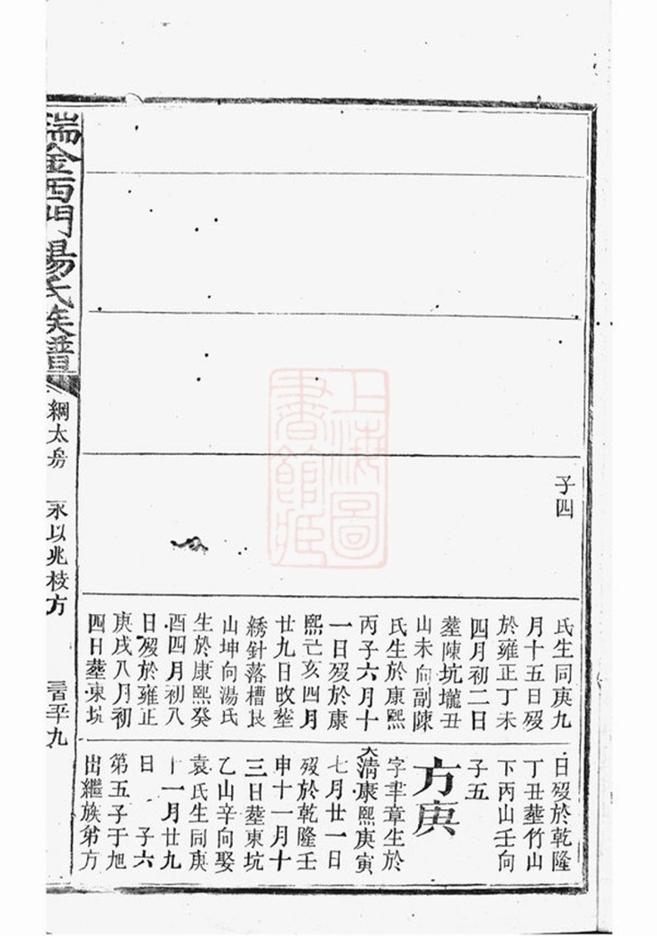 子四
氏生同庚九
月十五日歿
於雍正丁未
四月初二日
塟陳坑壠丑
山未向副陳
氏生於康熙
丙子六月十
一日歿於康
熙亡亥四月
廿九日改塟
綉針落槽艮
山坤向湯氏
生於康熙癸
酉四月初八
日歿於雍正
庚戌八月初
四日塟東坑
日歿於乾隆
丁丑塟竹山
下丙山壬向
子五
方庚
字聿章生於
大清康熙庚寅
七月廿一日
歿於乾隆壬
申十一月十
三日塟東坑
乙山辛向娶
袁氏生同庚
十一月廿九
日 子六
第五子于旭
出繼族弟方
瑞金西門楊氏族譜
綱太房
永以兆枝方
上海圖
書館藏